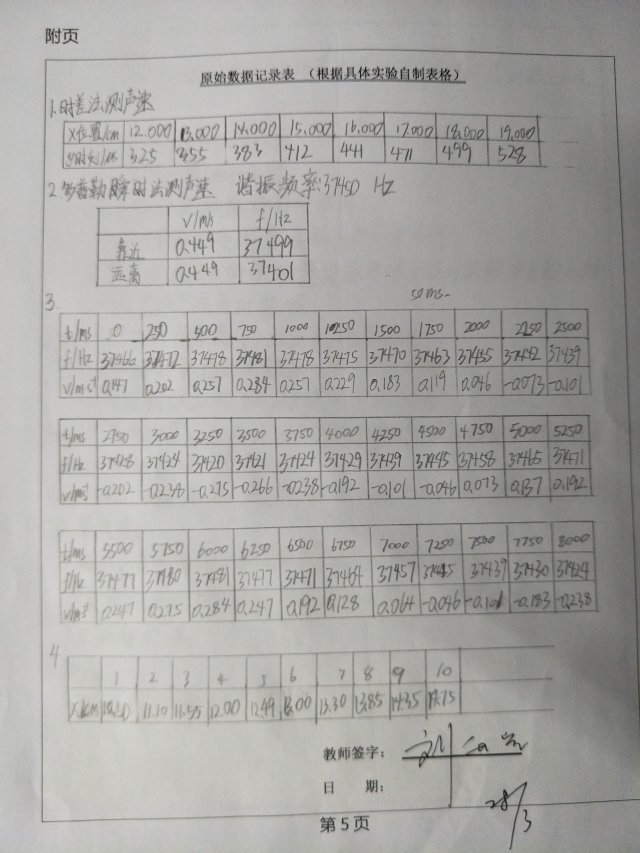 附页
原始数据记录表 （根据具体实验自制表格）
1.时差法测声速
X位置/cm 12.000 13.000 14.000 15.000 16.000 17.000 18.000 19.000
325 355 383 412 441 471 499 528
2.多普勒瞬时法测声速 谐振频率:37450 Hz
v/m/s f/Hz
靠近 0.449 37499
远离 0.449 37401
3. 50ms.
t/ms 0 250 500 750 1000 1250 1500 1750 2000 2250 2500
f/Hz 37466 37472 37478 37481 37478 37475 37470 37463 37455 37442 37439
v/m·s⁻¹ 0.147 0.202 0.257 0.284 0.257 0.229 0.183 0.119 0.046 -0.073 -0.101
t/ms 2750 3000 3250 3500 3750 4000 4250 4500 4750 5000 5250
f/Hz 37428 37424 37420 37421 37424 37429 37439 37445 37458 37465 37471
v/ms⁻¹ -0.202 -0.238 -0.275 -0.266 -0.238 -0.192 -0.101 -0.046 0.073 0.137 0.192
t/ms 5500 5750 6000 6250 6500 6750 7000 7250 7500 7750 8000
f/Hz 37477 37480 37481 37477 37471 37464 37457 37445 37439 37430 37424
v/ms⁻¹ 0.247 0.275 0.284 0.247 0.192 0.128 0.064 -0.046 -0.101 -0.183 -0.238
4
1 2 3 4 5 6 7 8 9 10
10.50 11.10 11.55 12.00 12.49 13.00 13.30 13.85 14.35 14.75
教师签字：
日 期：
28/3
第 5 页